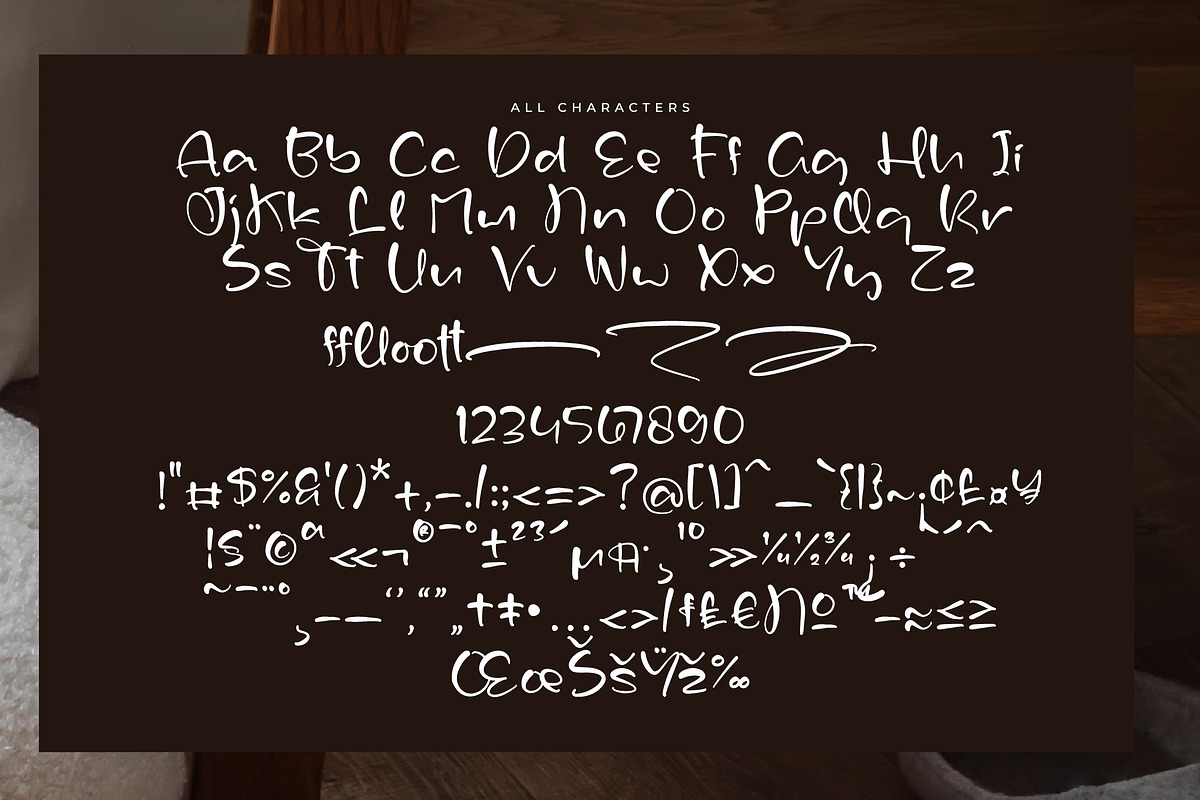 ALL CHARACTERS
Aa Bb Cc Dd Ee Ff Gg Hh Ii
Jj Kk Ll Mm Nn Oo Pp Qq Rr
Ss Tt Uu Vv Ww Xx Yy Zz
fflloott
1234567890
!"#$%&'()*+,-./:;<=>?@[\]^_`{|}~¡¢£¤¥
¦§¨©ª«¬®¯°±²³´µ¶·¸¹º»¼½¾¿÷
–—‘’‚“”„†‡•…‹›⁄ƒ₤€№™−≈≤≥
ŒœŠšŸž‰